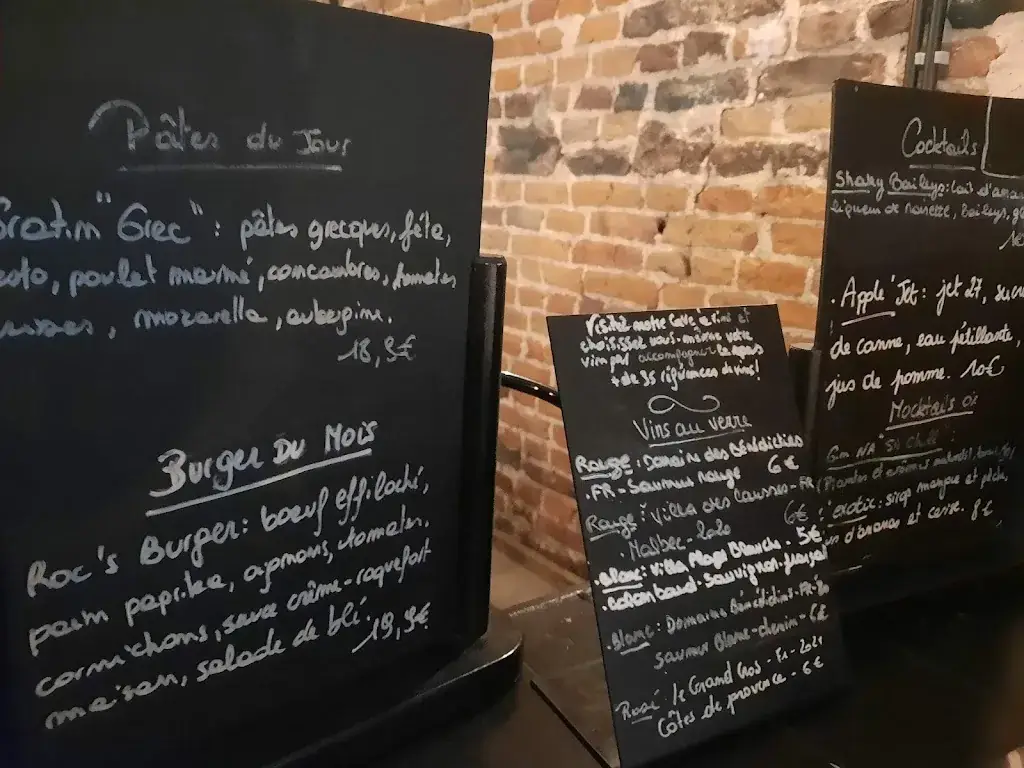 Pâtes du Jour
"Grec" : pâtes grecques, féta,
poulet mariné, concombres, tomates
, mozarella, aubergine.
18,9€
Burger du Mois
Roc's Burger : bœuf effiloché,
pain paprika, oignons, tomates,
cornichons, sauce crème-roquefort
maison, salade de blé. 19,9€
Visitez notre cave à vins et
choisissez vous-même votre
vin accompagner
+ de 35 références de vins!
Vins au verre
Rouge : Domaine des Bénédictins
. FR - Saumur rouge 6€
Rouge : Villa des Causses - FR
. Malbec - 2020 6€
. Blanc : Villa Blanche . 5€
Sauvignon
. Blanc : Domaine Bénédictins - FR
Saumur blanc - chenin - 6€
Rosé le Grand Ros - Fr - 2021
Côtes de provence - 6€
Cocktails
Shaky Baileys : lait
liqueur de noisette, baileys,
. Apple Jet : jet 27, sucre
de canne, eau pétillante,
jus de pomme. 10€
Mocktails
Gin NA "So Chill" :
exotic : sirop mangue et pêche,
d'ananas et cerise. 8€